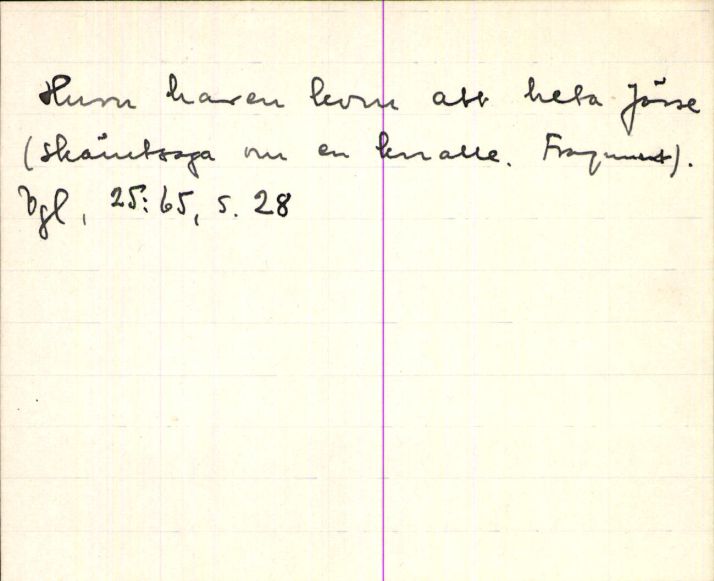 Hur haren kom att heta Jösse
(skämtsaga om en knalle. Fragment).
Vgl, 25:65, s. 28